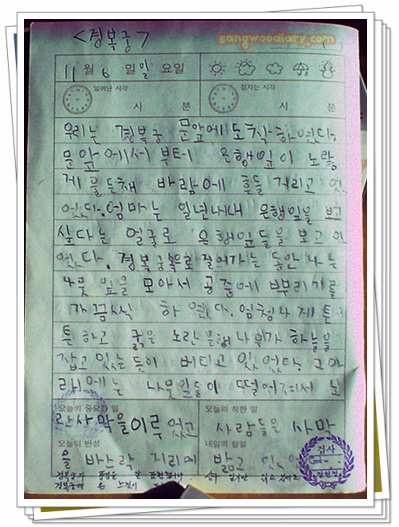 sangwoodiary.com
<경복궁>
11월 6일 일요일
일어난 시각 잠자는 시각
시 분 시 분
우리는 경복궁 문앞에 도착하였다.
문앞에서 부터 은행잎이 노랗
게 물든채 바람에 흔들 거리고 있
었다. 엄마는 일년내내 은행잎을 보고
싶다는 얼굴로 은행잎들을 보고 있
었다. 경복궁속으로 들어가는 동안 나는
나뭇잎을 모아서 공중에 뿌리기를
가끔씩 하였다. 엄청나게 튼
튼하고 굵은 노란 은행나무가 하늘을
잡고 있는듯이 버티고 있었다. 그 아
래에는 나뭇잎들이 떨어져서 노
오늘의 중요한 일 오늘의 착한 일
란 사막을 이루었고 사람들은 사막
오늘의 반성 내일의 할일
을 바스락 거리며 밟고 있었다.
검사